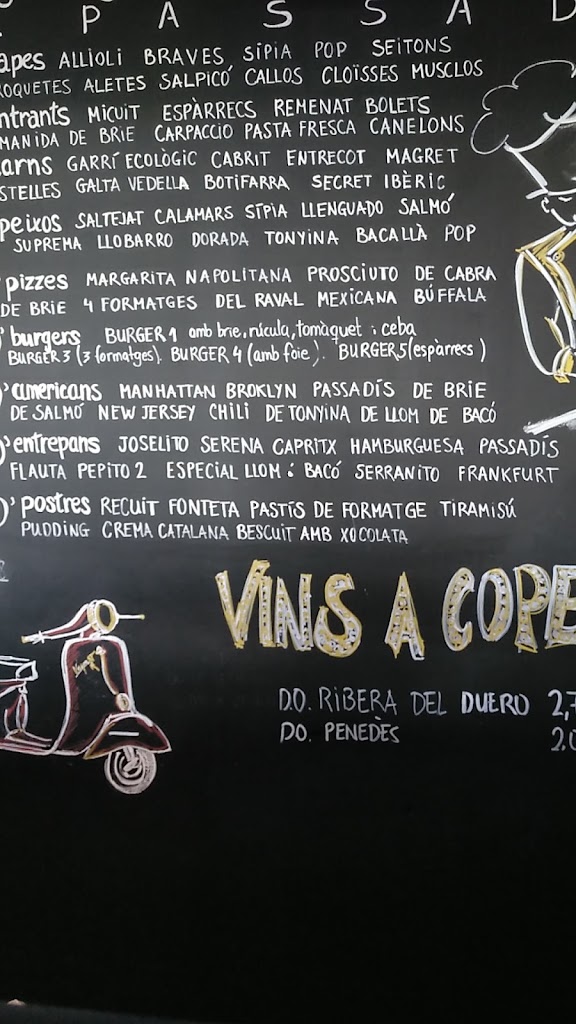 P A S S A D
apes ALLIOLI BRAVES SÍPIA POP SEITONS
ROQUETES ALETES SALPICÓ CALLOS CLOÏSSES MUSCLOS
ntrants MICUIT ESPÀRRECS REMENAT BOLETS
MANIDA DE BRIE CARPACCIO PASTA FRESCA CANELONS
arns GARRÍ ECOLÒGIC CABRIT ENTRECOT MAGRET
STELLES GALTA VEDELLA BOTIFARRA SECRET IBÈRIC
peixos SALTEJAT CALAMARS SÍPIA LLENGUADO SALMÓ
SUPREMA LLOBARRO DORADA TONYINA BACALLÀ POP
pizzes MARGARITA NAPOLITANA PROSCIUTO DE CABRA
DE BRIE 4 FORMATGES DEL RAVAL MEXICANA BÚFFALA
burgers BURGER 1 amb brie, rúcula, tomàquet i ceba
BURGER 3 (3 formatges). BURGER 4 (amb foie). BURGER 5 (espàrrecs)
'americans MANHATTAN BROKLYN PASSADÍS DE BRIE
DE SALMÓ NEW JERSEY CHILI DE TONYINA DE LLOM DE BACÓ
'entrepans JOSELITO SERENA CAPRITX HAMBURGUESA PASSADÍS
FLAUTA PEPITO 2 ESPECIAL LLOM i BACÓ SERRANITO FRANKFURT
' postres RECUIT FONTETA PASTÍS DE FORMATGE TIRAMISÚ
PUDDING CREMA CATALANA BESCUIT AMB XOCOLATA
VINS A COPE
D.O. RIBERA DEL DUERO 2,7
DO. PENEDÈS 2.0